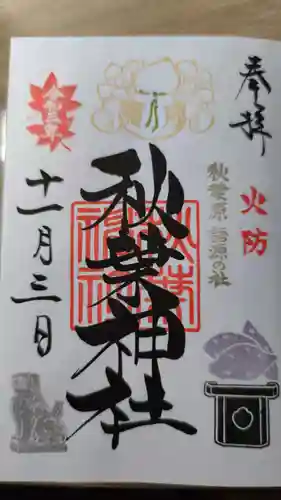 奉拝
火防
秋葉原 語源の社
秋葉神社
秋葉神社
十一月三日